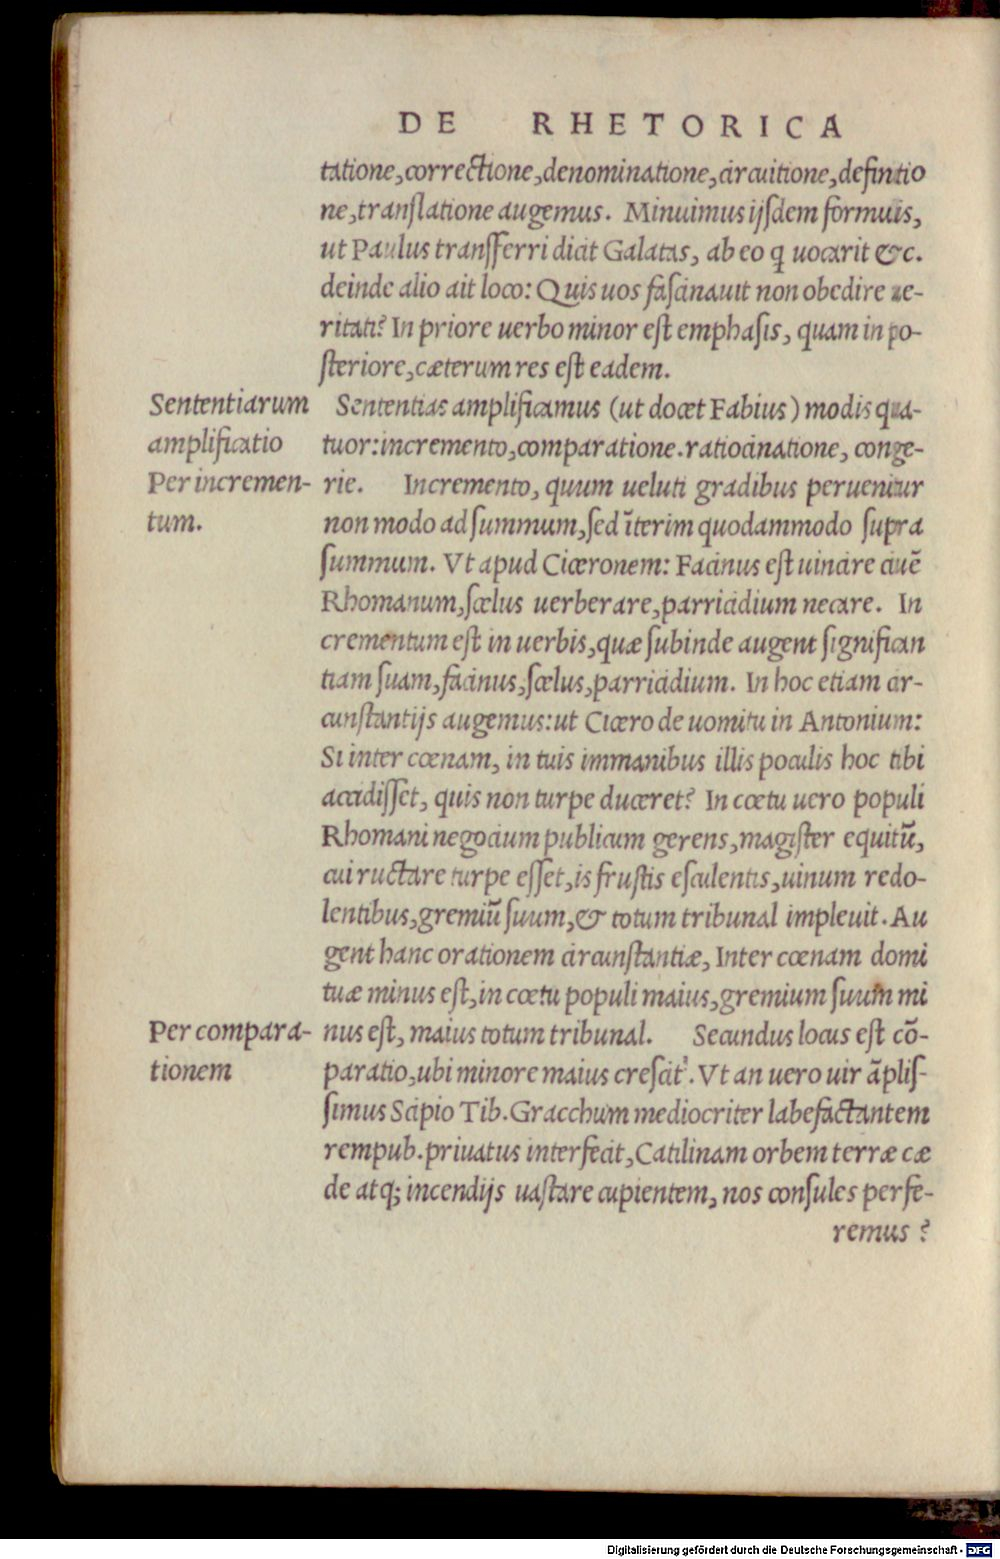 DE RHETORICA
tatione, correctione, denominatione, circuitione, definitio
ne, translatione augemus. Minuimus ijsdem formulis,
ut Paulus transferri dicit Galatas, ab eo q uocarit &c.
deinde alio ait loco: Quis uos fascinauit non obedire ue-
ritati? In priore uerbo minor est emphasis, quam in po-
steriore, cæterum res est eadem.
Sententiarum
amplificatio
Sententias amplificamus (ut docet Fabius) modis qua-
tuor: incremento, comparatione. ratiocinatione, conge-
Per incremen-
tum.
rie. Incremento, quum ueluti gradibus peruenitur
non modo ad summum, sed īterim quodammodo supra
summum. Vt apud Ciceronem: Facinus est uincire ciuē
Rhomanum, scelus uerberare, parricidium necare. In
crementum est in uerbis, quæ subinde augent significan
tiam suam, facinus, scelus, parricidium. In hoc etiam cir-
cunstantijs augemus: ut Cicero de uomitu in Antonium:
Si inter cœnam, in tuis immanibus illis poculis hoc tibi
accidisset, quis non turpe duceret? In cœtu uero populi
Rhomani negocium publicum gerens, magister equitū,
cui ructare turpe esset, is frustis esculentis, uinum redo-
lentibus, gremiū suum, & totum tribunal impleuit. Au
gent hanc orationem circunstantiæ, Inter cœnam domi
tuæ minus est, in cœtu populi maius, gremium suum mi
Per compara-
tionem
nus est, maius totum tribunal. Secundus locus est cō-
paratio, ubi minore maius crescit'. Vt an uero uir āplis-
simus Scipio Tib. Gracchum mediocriter labefactantem
rempub. priuatus interfecit, Catilinam orbem terræ cæ
de atq; incendijs uastare cupientem, nos consules perfe-
remus?
Digitalisierung gefördert durch die Deutsche Forschungsgemeinschaft - DFG